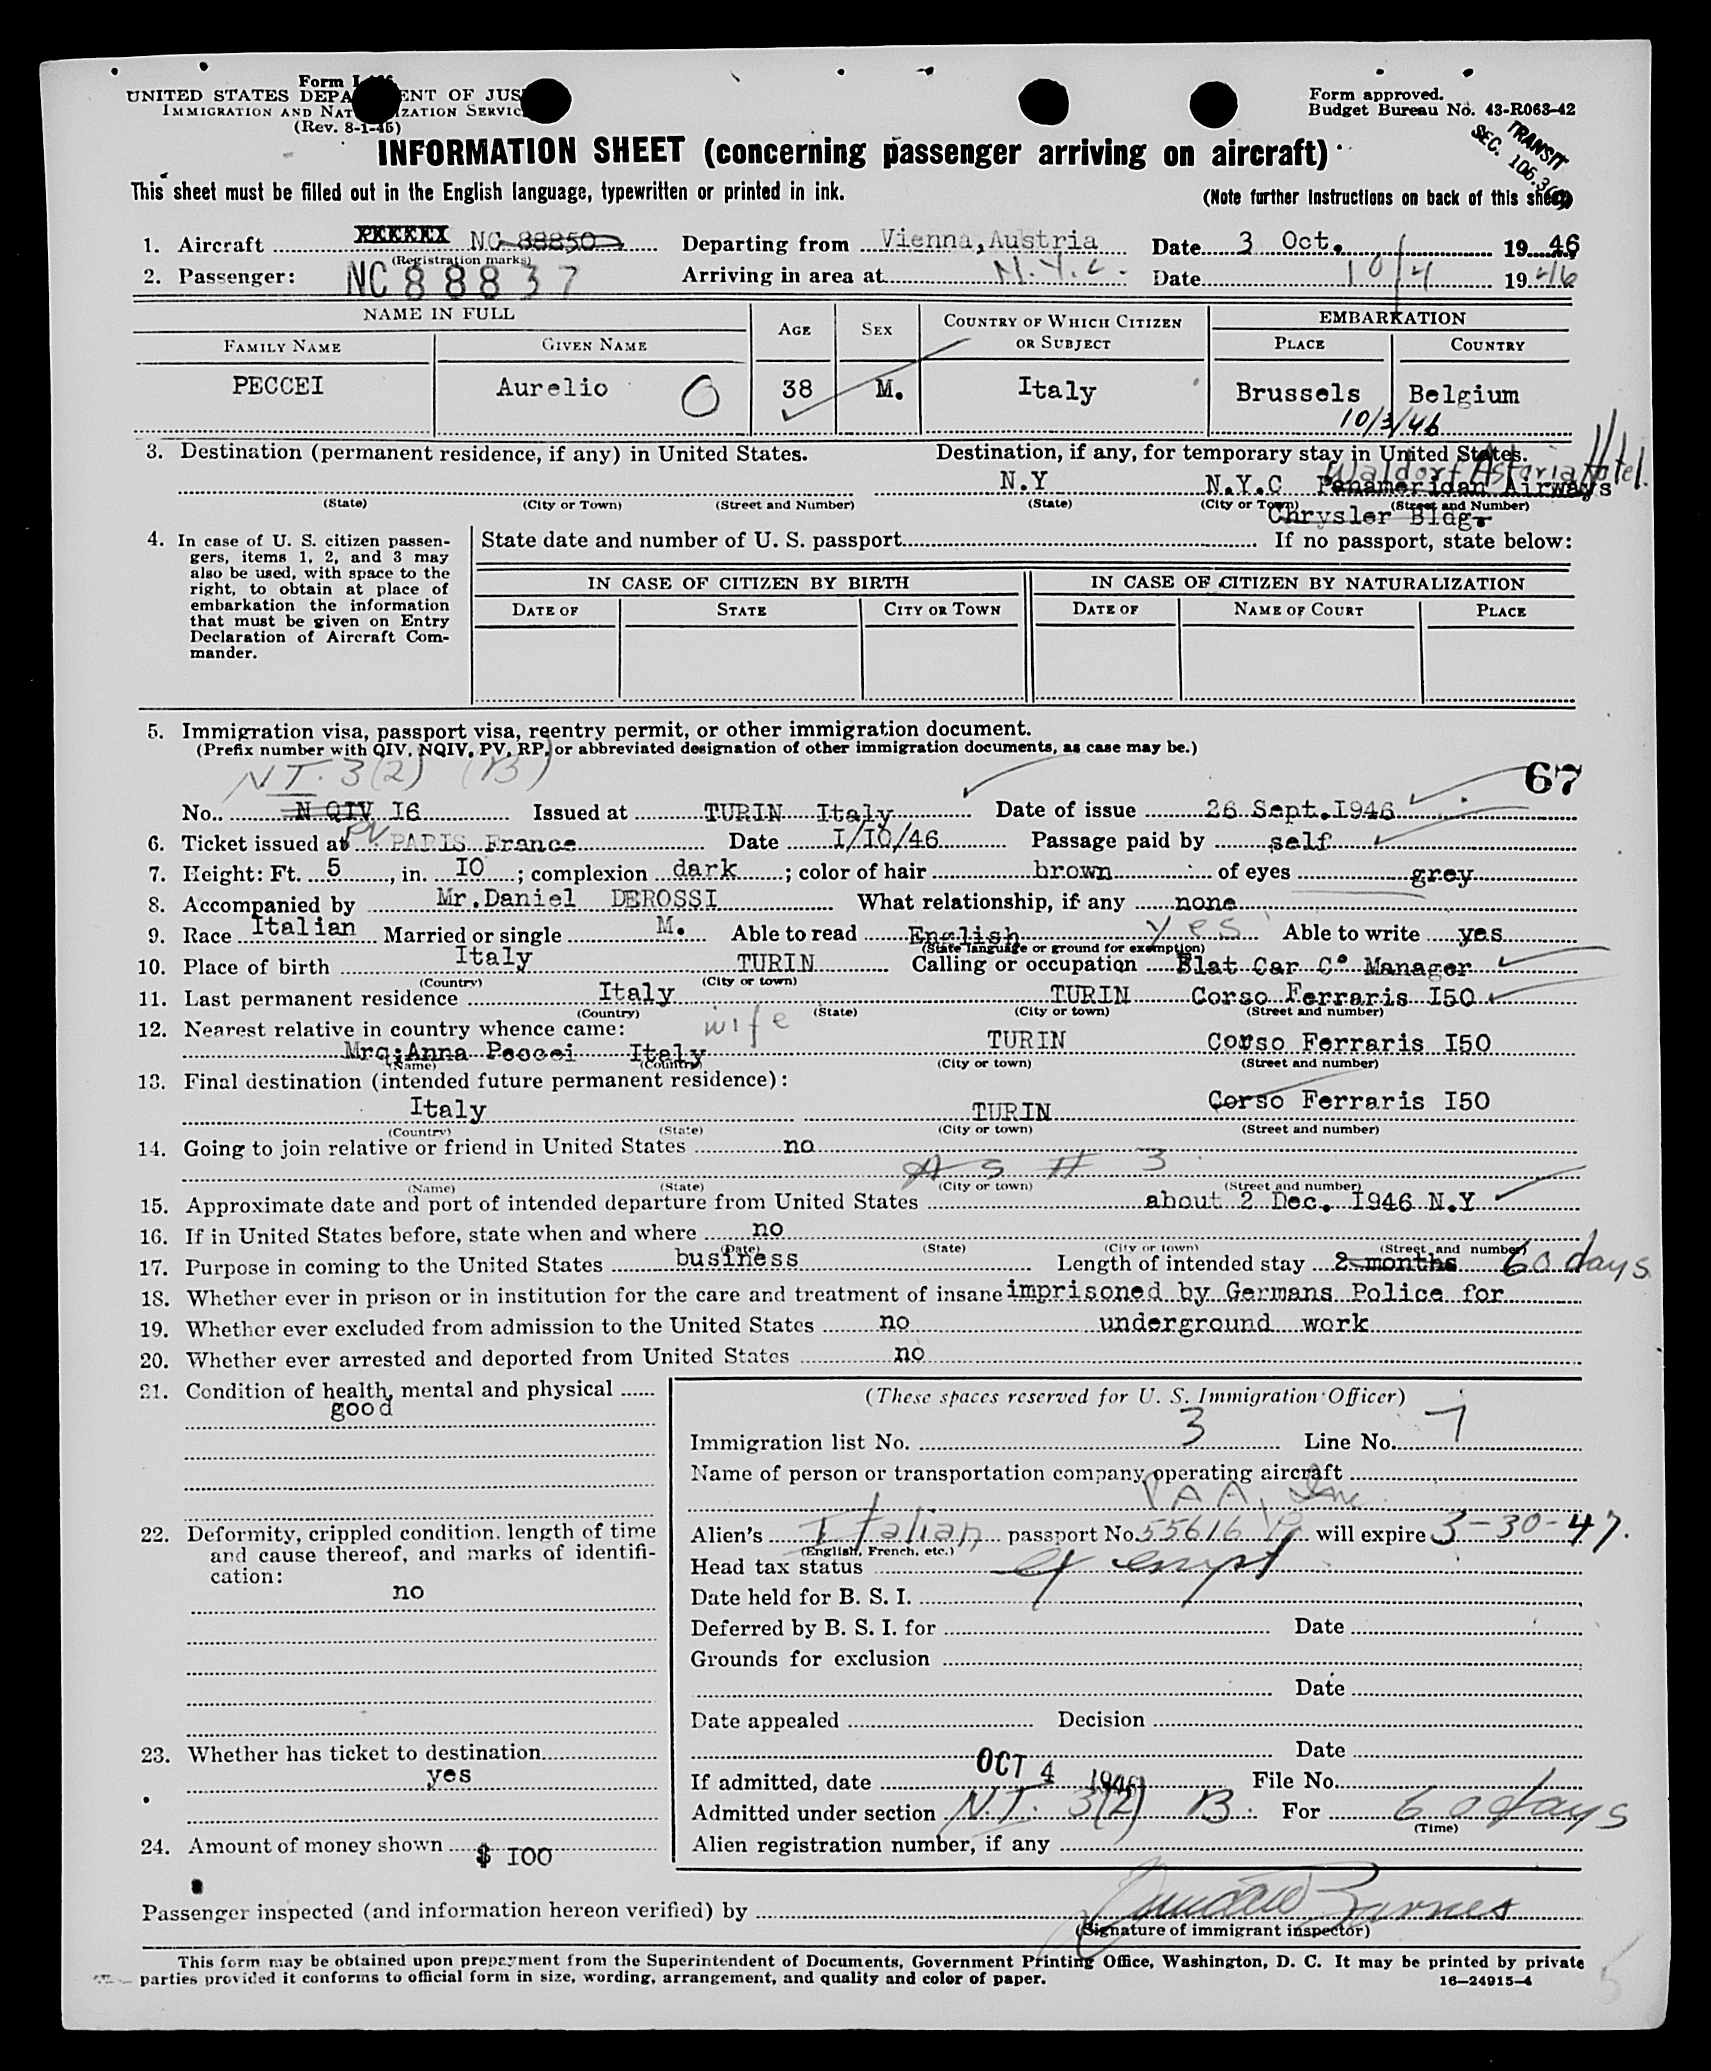 Form I-466
UNITED STATES DEPARTMENT OF JUSTICE
IMMIGRATION AND NATURALIZATION SERVICE
(Rev. 8-1-45)
Form approved.
Budget Bureau No. 43-R063-42
TRANSIT
SEC. 106.3
INFORMATION SHEET (concerning passenger arriving on aircraft)
This sheet must be filled out in the English language, typewritten or printed in ink.
(Note further instructions on back of this sheet)
1. Aircraft NC 88850 Departing from Vienna, Austria Date 3 Oct. 1946
(Registration marks)
2. Passenger: NC 88837 Arriving in area at N.Y.C. Date 10/4 1946
NAME IN FULL AGE SEX COUNTRY OF WHICH CITIZEN OR SUBJECT EMBARKATION
FAMILY NAME GIVEN NAME PLACE COUNTRY
PECCEI Aurelio O 38 M. Italy Brussels Belgium
10/3/46
3. Destination (permanent residence, if any) in United States. Destination, if any, for temporary stay in United States.
Waldorf Astoria Hotel.
N.Y N.Y.C Panameridan Airways
(State) (City or Town) (Street and Number) (State) (City or Town) (Street and Number)
Chrysler Bldg.
4. In case of U. S. citizen passen-
gers, items 1, 2, and 3 may
also be used, with space to the
right, to obtain at place of
embarkation the information
that must be given on Entry
Declaration of Aircraft Com-
mander.
State date and number of U. S. passport If no passport, state below:
IN CASE OF CITIZEN BY BIRTH IN CASE OF CITIZEN BY NATURALIZATION
DATE OF STATE CITY OR TOWN DATE OF NAME OF COURT PLACE
5. Immigration visa, passport visa, reentry permit, or other immigration document.
(Prefix number with QIV, NQIV, PV, RP, or abbreviated designation of other immigration documents, as case may be.)
N.T. 3(2) (B)
67
No. N QIV I6 Issued at TURIN Italy Date of issue 26 Sept. I946
PV
6. Ticket issued at PARIS France Date I/IO/46 Passage paid by self
7. Height: Ft. 5, in. IO; complexion dark; color of hair brown of eyes grey
8. Accompanied by Mr.Daniel DEROSSI What relationship, if any none
9. Race Italian Married or single M. Able to read English yes Able to write yes
(State language or ground for exemption)
10. Place of birth Italy TURIN Calling or occupation Fiat Car C° Manager
(Country) (City or town)
11. Last permanent residence Italy TURIN Corso Ferraris I50
(Country) (State) (City or town) (Street and number)
12. Nearest relative in country whence came: wife
Mrq;Anna Peccei Italy TURIN Corso Ferraris I50
(Name) (Country) (City or town) (Street and number)
13. Final destination (intended future permanent residence):
Italy TURIN Corso Ferraris I50
(Country) (State) (City or town) (Street and number)
14. Going to join relative or friend in United States no
AS # 3
(Name) (State) (City or town) (Street and number)
15. Approximate date and port of intended departure from United States about 2 Dec. I946 N.Y
16. If in United States before, state when and where no
(Date) (State) (City or town) (Street and number)
17. Purpose in coming to the United States business Length of intended stay 2 months 60 days
18. Whether ever in prison or in institution for the care and treatment of insane imprisoned by Germans Police for
19. Whether ever excluded from admission to the United States no underground work
20. Whether ever arrested and deported from United States no
21. Condition of health, mental and physical
good
22. Deformity, crippled condition, length of time
and cause thereof, and marks of identifi-
cation:
no
23. Whether has ticket to destination
yes
24. Amount of money shown $ I00
(These spaces reserved for U. S. Immigration Officer)
Immigration list No. 3 Line No. 7
Name of person or transportation company operating aircraft
PAA, Inc
Alien's Italian passport No. 55616 P will expire 3-30-47.
(English, French, etc.)
Head tax status exempt
Date held for B. S. I.
Deferred by B. S. I. for Date
Grounds for exclusion
Date
Date appealed Decision
Date
If admitted, date OCT 4 1946 File No.
Admitted under section N.T. 3(2) B For 60 days
(Time)
Alien registration number, if any
Passenger inspected (and information hereon verified) by Barnes
(Signature of immigrant inspector)
This form may be obtained upon prepayment from the Superintendent of Documents, Government Printing Office, Washington, D. C. It may be printed by private
parties provided it conforms to official form in size, wording, arrangement, and quality and color of paper.
16—24915-4